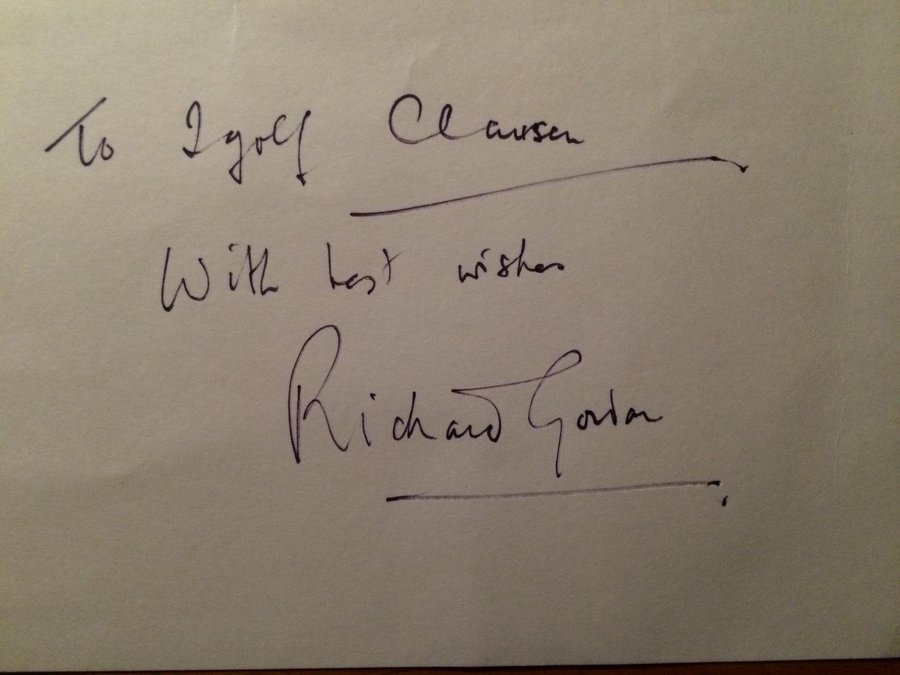 To Igolf Clausen
With best wishes
Richard Gordon